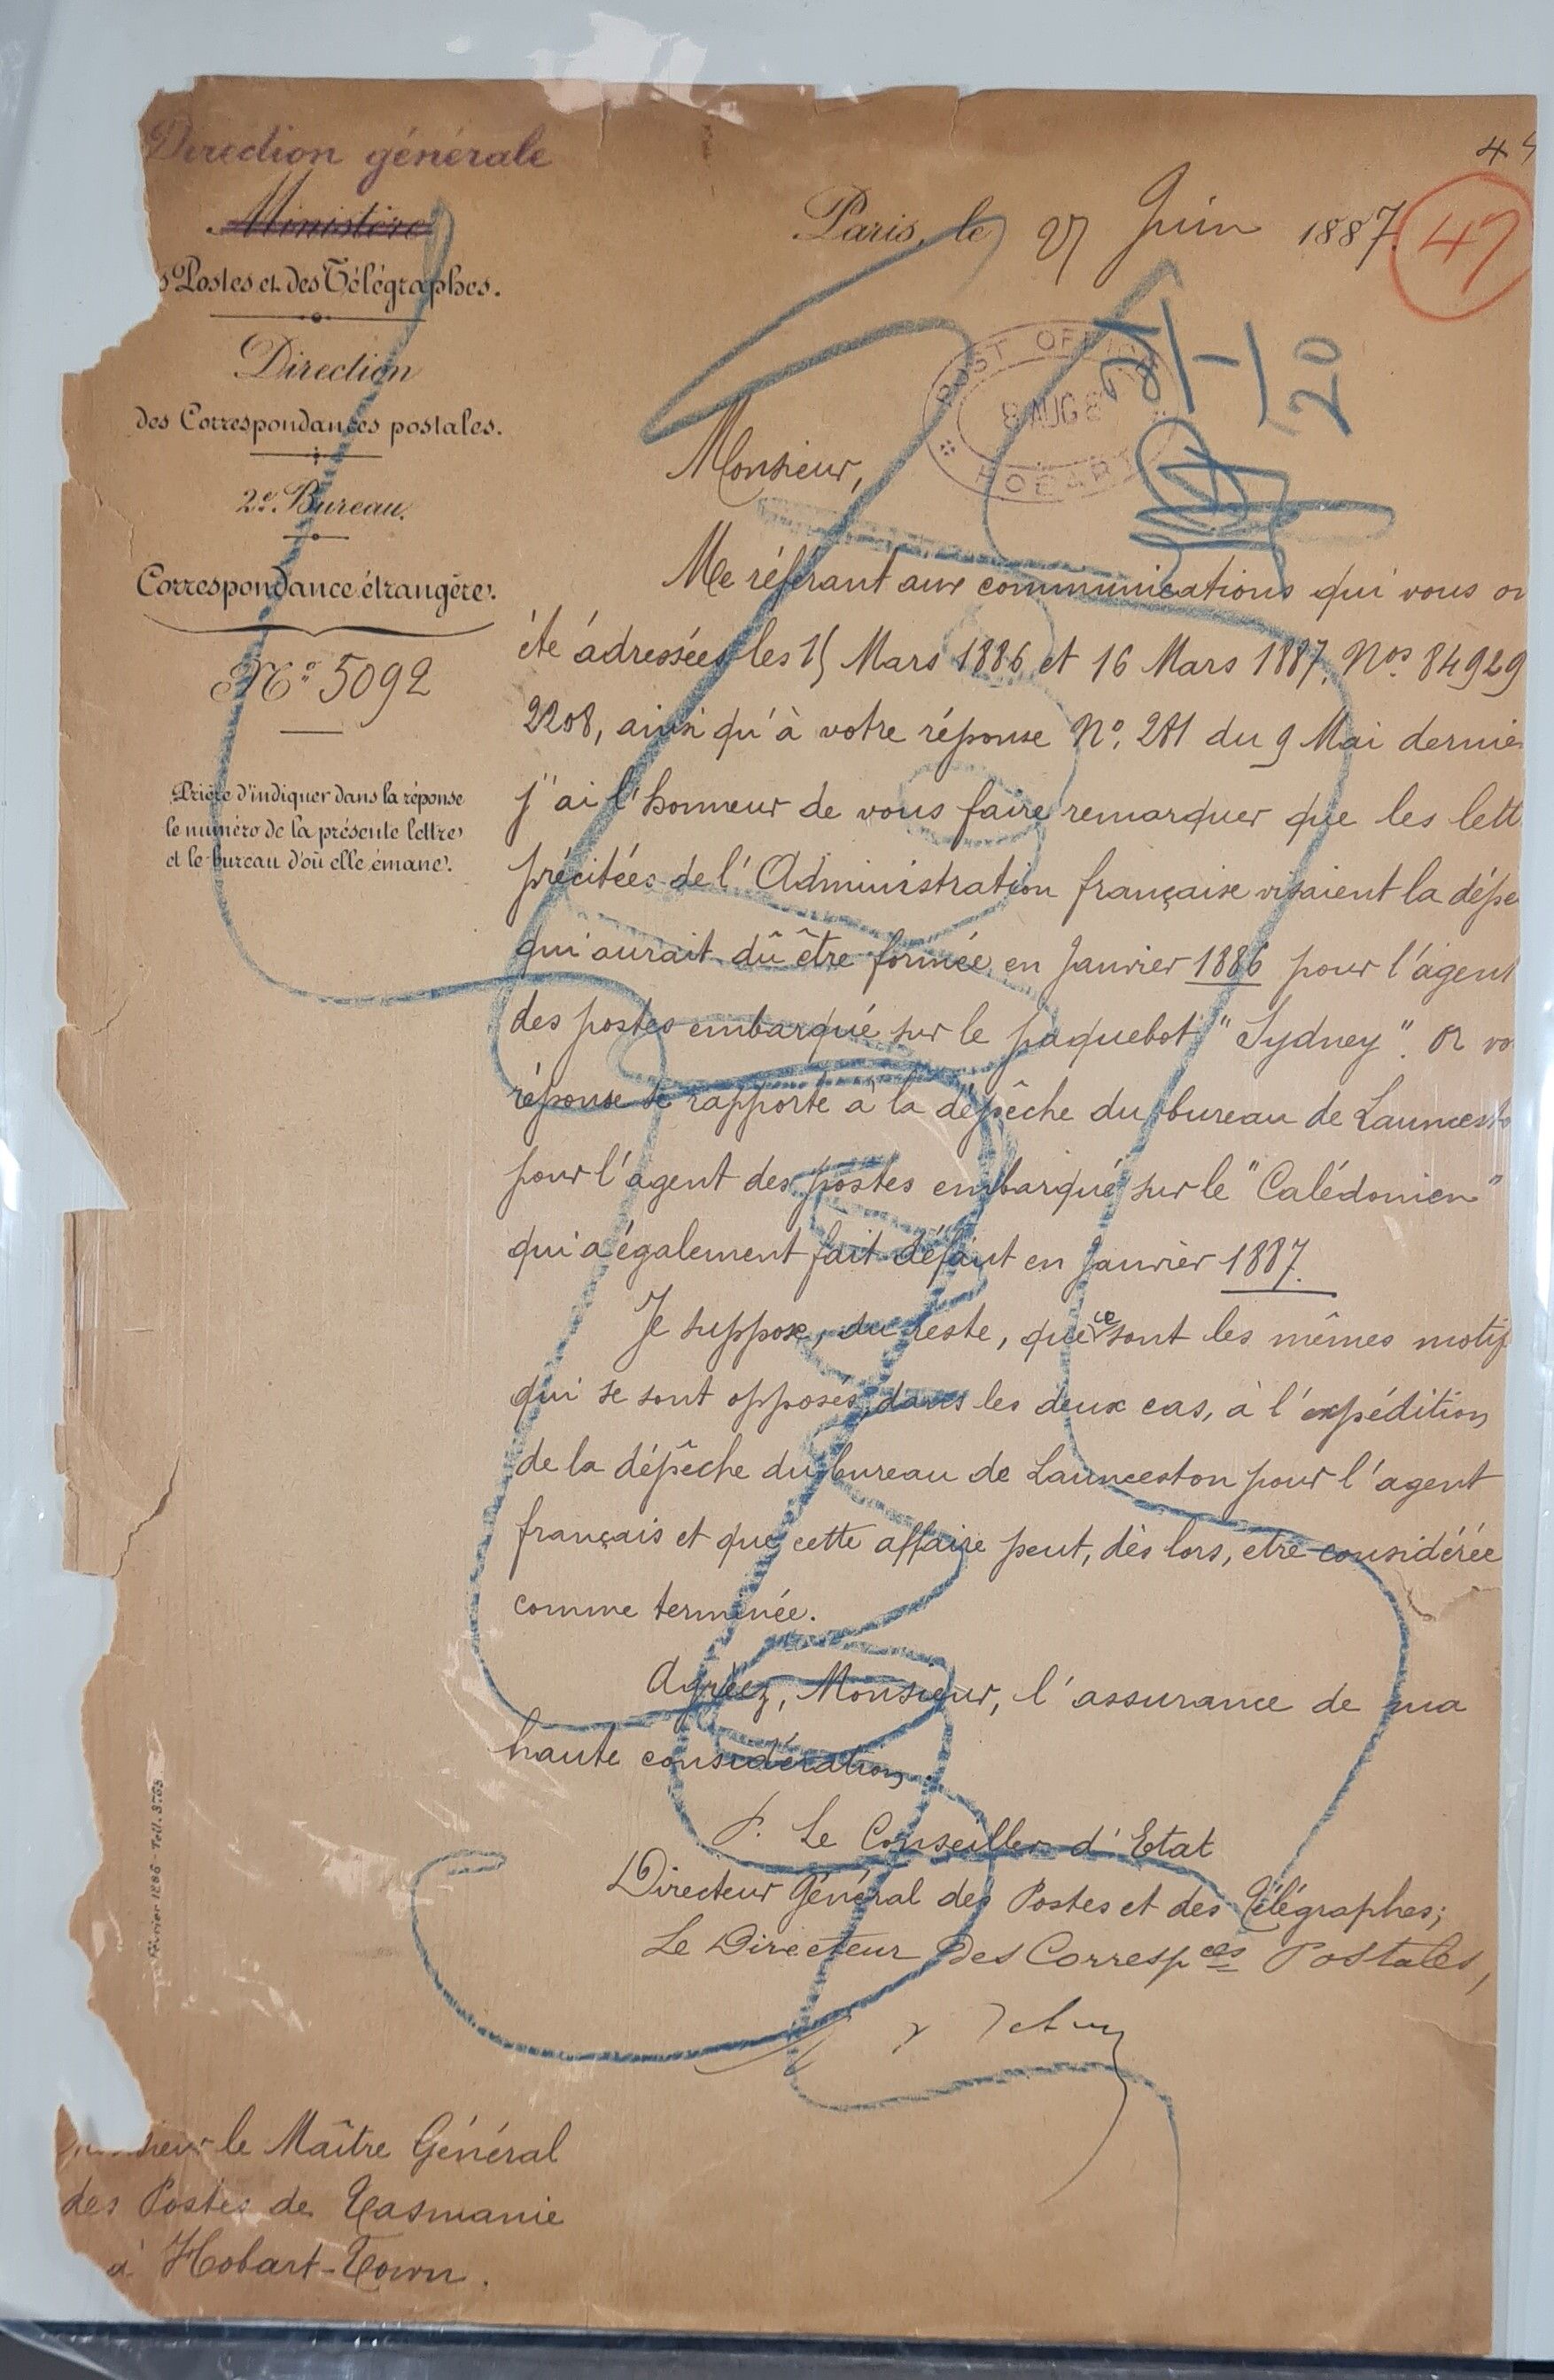 Direction générale
Ministère
s Postes et des Télégraphes.
Direction
des Correspondances postales.
2e. Bureau.
Correspondance étrangère.
No. 5092
Prière d'indiquer dans la réponse
le numéro de la présente lettre
et le bureau d'où elle émane.
Paris, le 27 Juin 1887.
47
POST OFFICE
8 AUG 8
HOBART
21/1/20
Monsieur,
Me référant aux communications qui vous on
été adressées les 15 Mars 1886 et 16 Mars 1887, Nos. 84929
2208, ainsi qu'à votre réponse No. 281 du 9 Mai dernie
j'ai l'honneur de vous faire remarquer que les lett
précitées de l'Administration française visaient la dépê
qui aurait dû être formée en Janvier 1886 pour l'agent
des postes embarqué sur le paquebot "Sydney". Or vo
réponse se rapporte à la dépêche du bureau de Launcesto
pour l'agent des postes embarqué sur le "Calédonien"
qui a également fait défaut en Janvier 1887.
Je suppose, du reste, que ce sont les mêmes motif
qui se sont opposés, dans les deux cas, à l'expédition
de la dépêche du bureau de Launceston pour l'agent
français et que cette affaire peut, dès lors, etre considérée
comme terminée.
Agréez, Monsieur, l'assurance de ma
haute considération.
P. Le Conseiller d'Etat
Directeur Général des Postes et des Télégraphes;
Le Directeur des Correspces Postales,
sieur le Maître Général
des Postes de Tasmanie
à Hobart-Town.